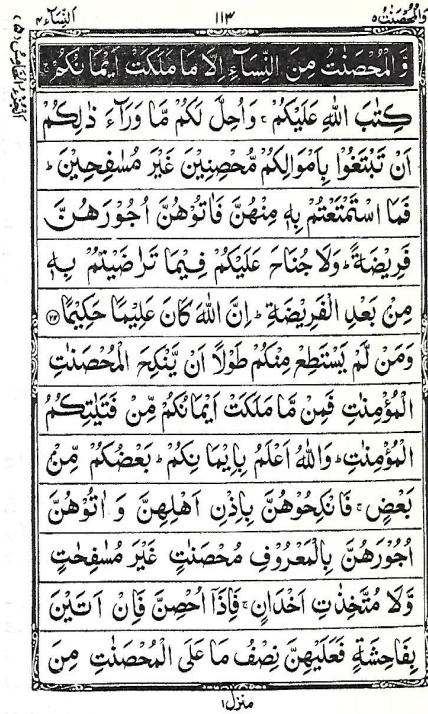 وَالْمُحْصَنٰتُ ٥ ١١٣ اَلنِّسَآء ٤
وَّالْمُحْصَنٰتُ مِنَ النِّسَآءِ اِلَّا مَا مَلَكَتْ اَيْمَانُكُمْ ۚ
كِتٰبَ اللّٰهِ عَلَيْكُمْ ۚ وَاُحِلَّ لَكُمْ مَّا وَرَآءَ ذٰلِكُمْ
اَنْ تَبْتَغُوْا بِاَمْوَالِكُمْ مُّحْصِنِيْنَ غَيْرَ مُسٰفِحِيْنَ ؕ
فَمَا اسْتَمْتَعْتُمْ بِهٖ مِنْهُنَّ فَاٰتُوْهُنَّ اُجُوْرَهُنَّ
فَرِيْضَةً ؕ وَلَا جُنَاحَ عَلَيْكُمْ فِيْمَا تَرَاضَيْتُمْ بِهٖ
مِنْۢ بَعْدِ الْفَرِيْضَةِ ؕ اِنَّ اللّٰهَ كَانَ عَلِيْمًا حَكِيْمًا ۝۲۴
وَمَنْ لَّمْ يَسْتَطِعْ مِنْكُمْ طَوْلًا اَنْ يَّنْكِحَ الْمُحْصَنٰتِ
الْمُؤْمِنٰتِ فَمِنْ مَّا مَلَكَتْ اَيْمَانُكُمْ مِّنْ فَتَيٰتِكُمُ
الْمُؤْمِنٰتِ ؕ وَاللّٰهُ اَعْلَمُ بِاِيْمَانِكُمْ ؕ بَعْضُكُمْ مِّنْۢ
بَعْضٍ ۚ فَانْكِحُوْهُنَّ بِاِذْنِ اَهْلِهِنَّ وَ اٰتُوْهُنَّ
اُجُوْرَهُنَّ بِالْمَعْرُوْفِ مُحْصَنٰتٍ غَيْرَ مُسٰفِحٰتٍ
وَّلَا مُتَّخِذٰتِ اَخْدَانٍ ۚ فَاِذَاۤ اُحْصِنَّ فَاِنْ اَتَيْنَ
بِفَاحِشَةٍ فَعَلَيْهِنَّ نِصْفُ مَا عَلَى الْمُحْصَنٰتِ مِنَ
منزل ١